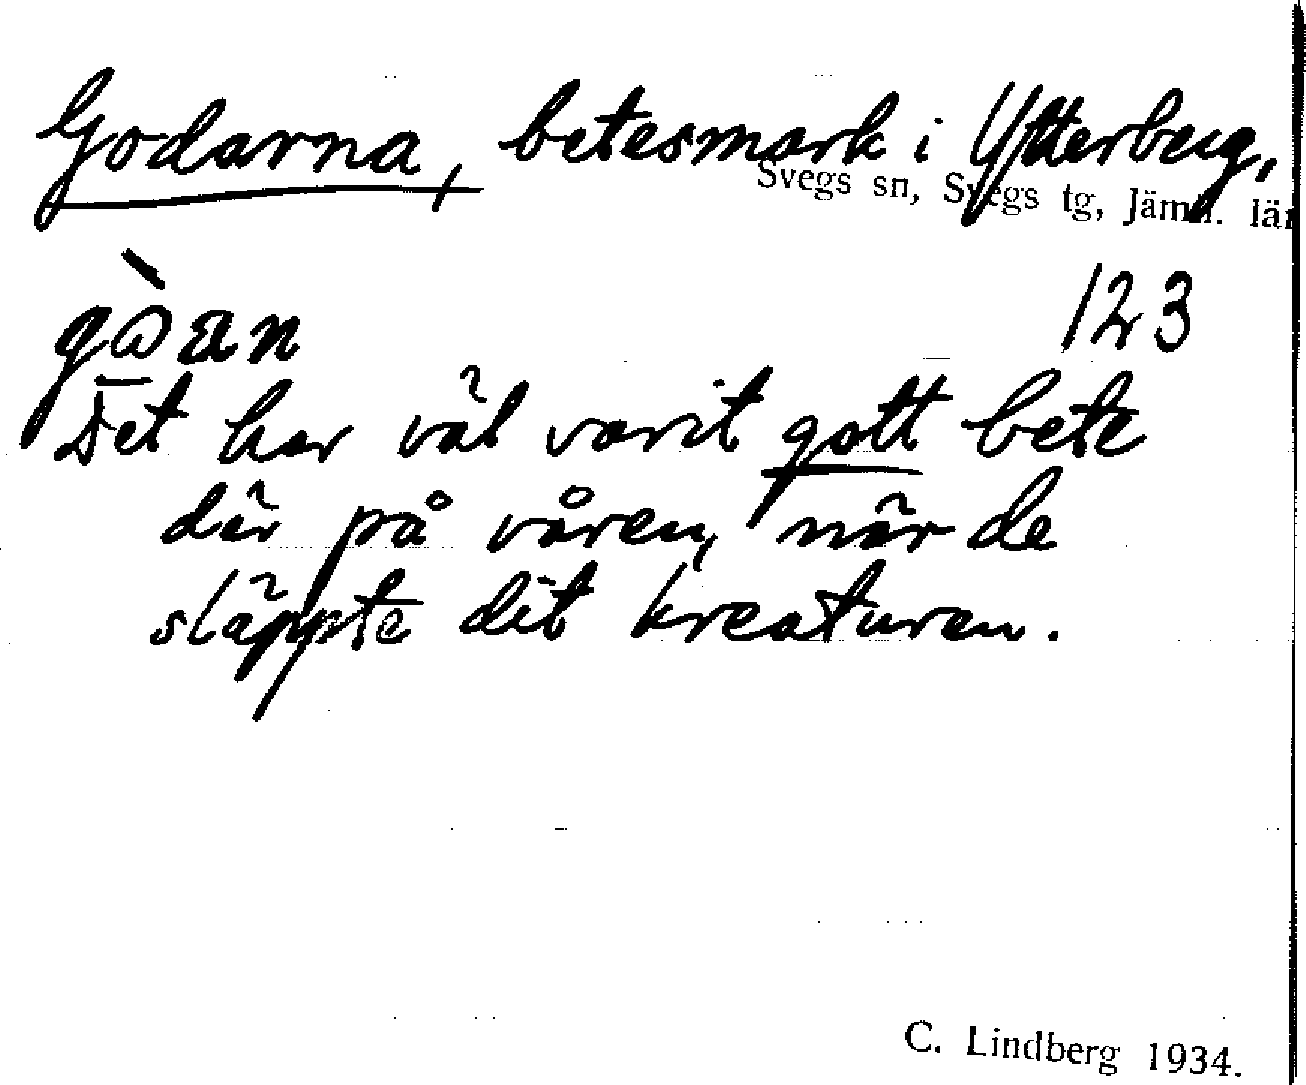 Godarna, betesmark i Ytterberg,
Svegs sn, Svegs tg, Jämtl. län
123
Det har väl varit gott bete
där på våren, när de
släppte dit kreaturen.
C. Lindberg 1934.